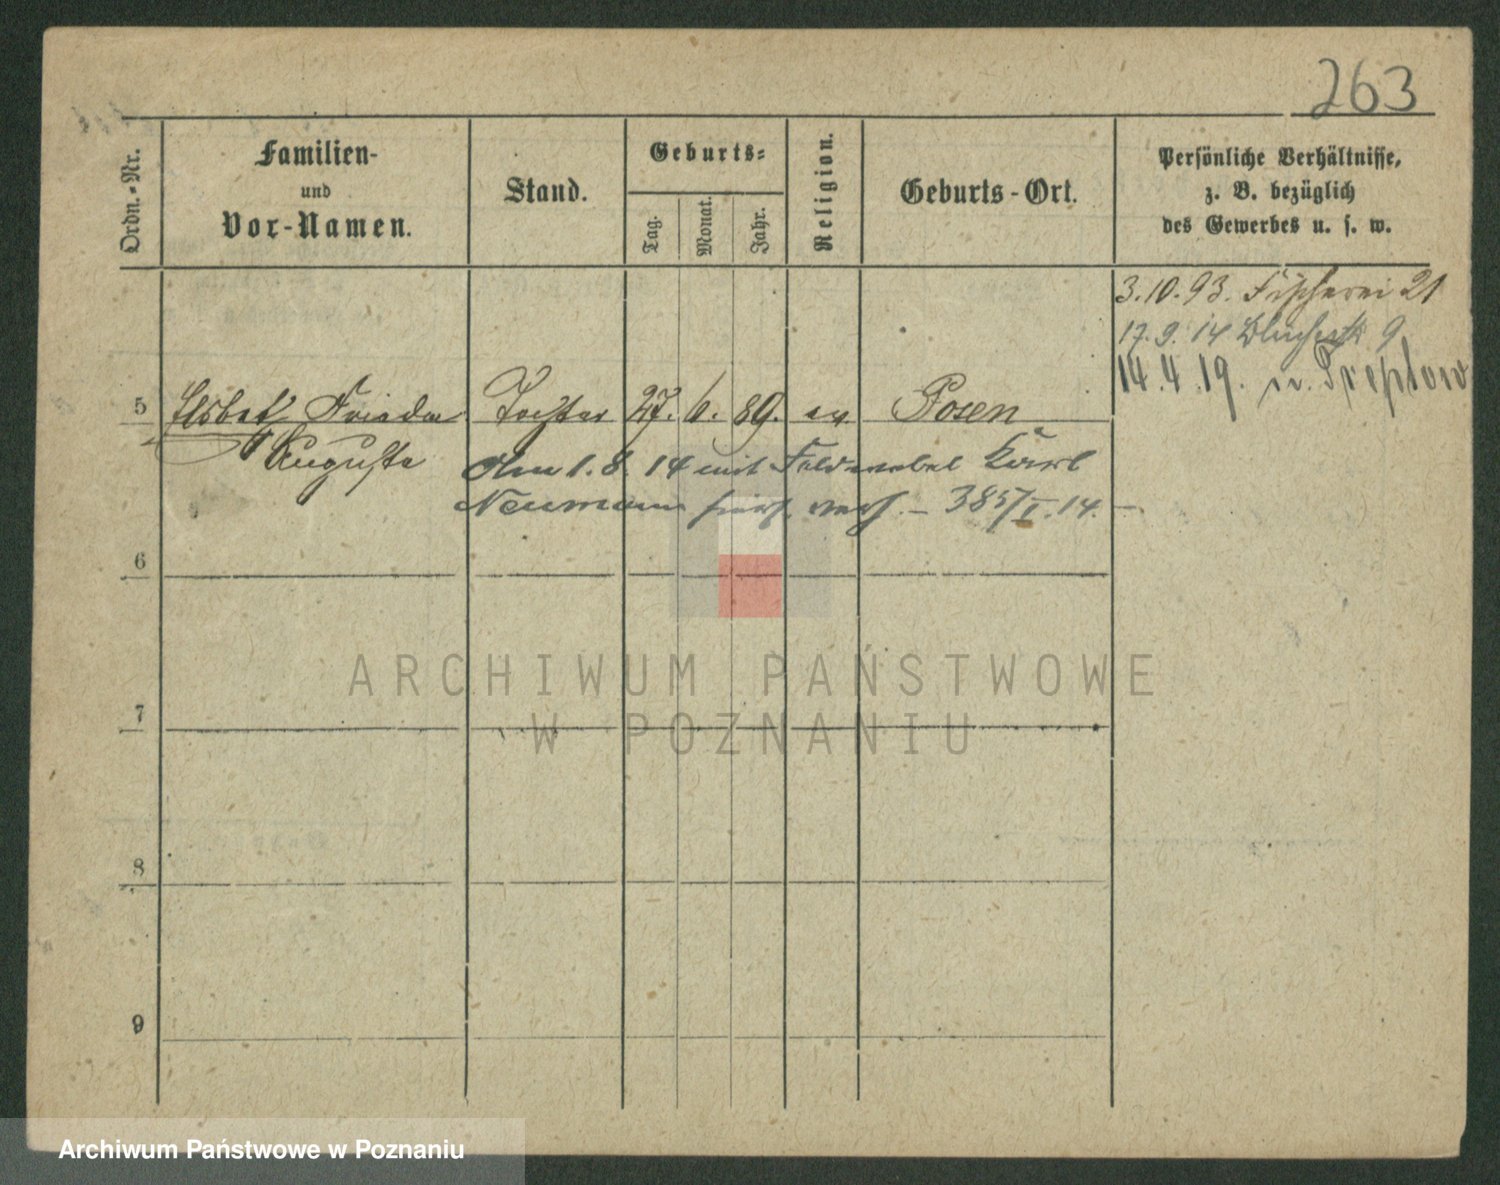 263
Ordn.-Nr.
Familien-
und
Vor-Namen.
Stand.
Geburts-
Tag.
Monat.
Jahr.
Religion.
Geburts-Ort.
Persönliche Verhältnisse,
z. B. bezüglich
des Gewerbes u. s. w.
3.10.93. Fischerei 21
17.9.14 9
14.4.19. n. Treptow
5 Elsbet Frieda Tochter 27. 6. 89. ev. Posen
Auguste
Am 1.8.14 mit Feldwebel Karl
Neumann hier verh. – 385/I.14. –
6
7
8
9
ARCHIWUM PAŃSTWOWE
W POZNANIU
Archiwum Państwowe w Poznaniu